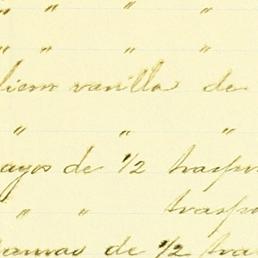 " " " "
" " " "
licor vanilla de
" " "
ayos de 1/2 traspor
" " traspor
amas de 1/2 tra